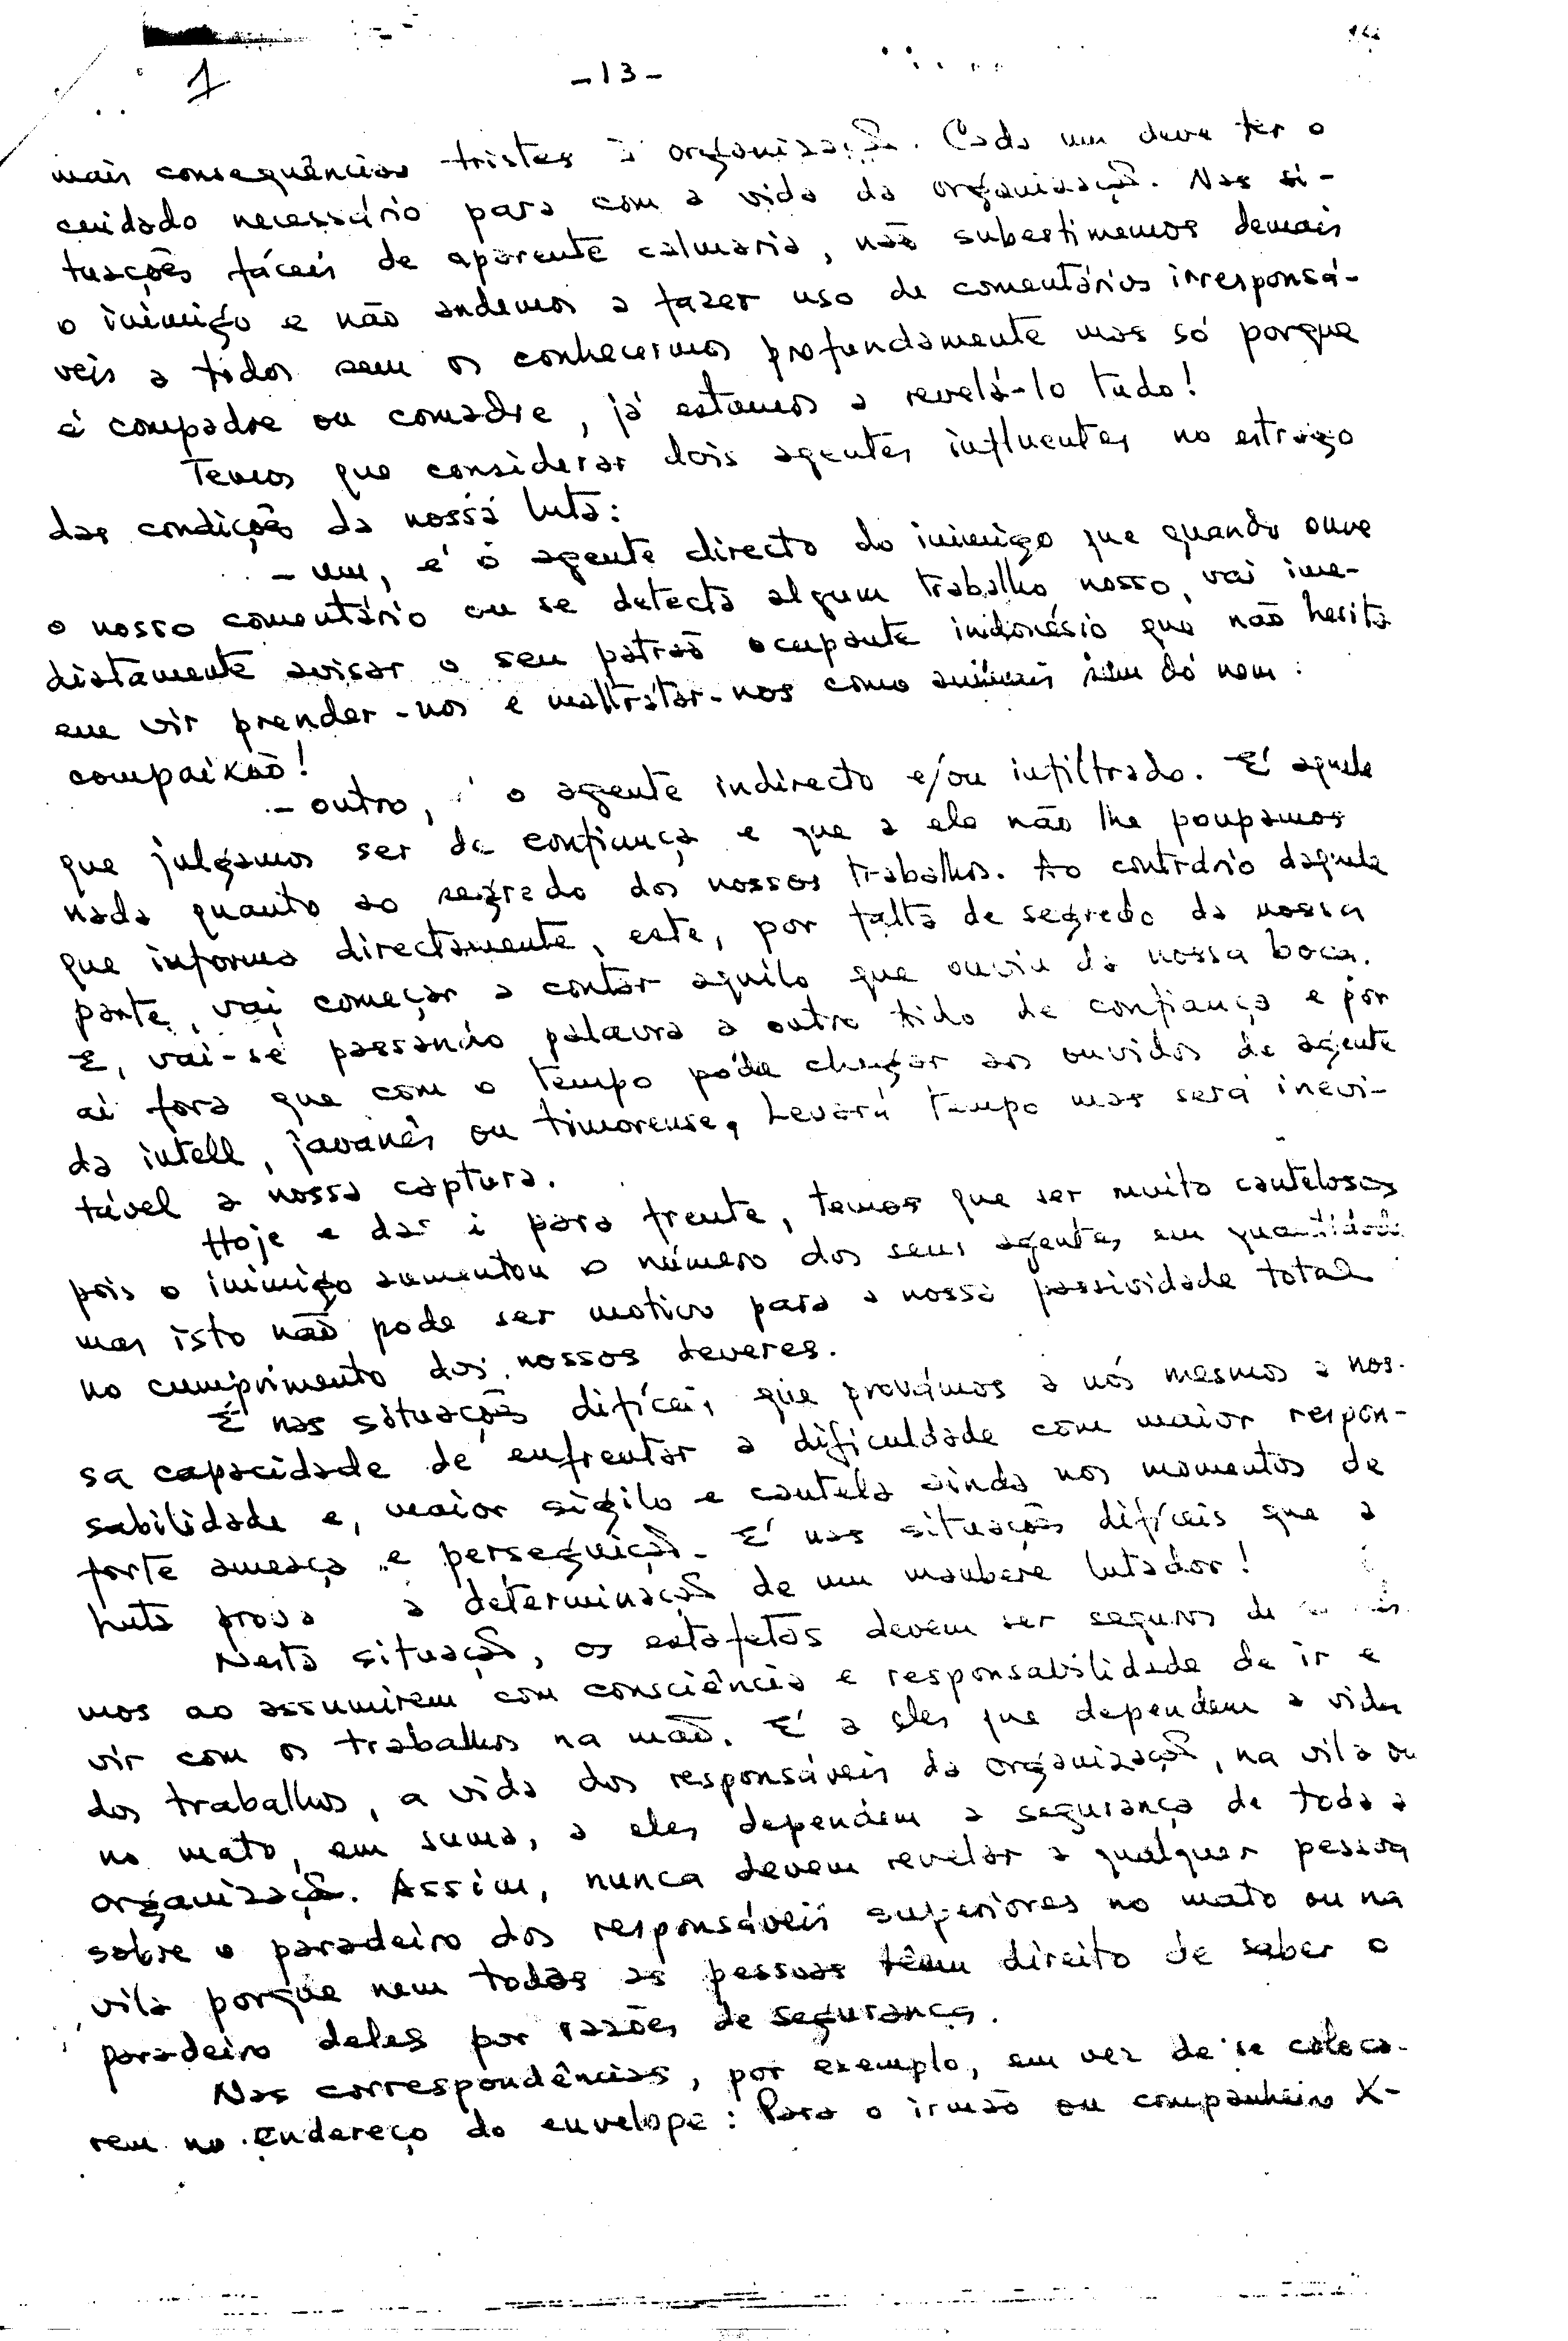 1
-13-
mais consequências tristes à organização. Cada um deve ter o
cuidado necessário para com a vida da organização. Nas si-
tuações fáceis de aparente calmaria, não subestimemos demais
o inimigo e não andemos a fazer uso de comentários irresponsá-
veis a todos sem os conhecermos profundamente mas só porque
é compadre ou comadre, já estamos a revelá-lo tudo!
Temos que considerar dois agentes influentes no estrago
das condições da nossa luta:
- um, é o agente directo do inimigo que quando ouve
o nosso comentário ou se detecta algum trabalho nosso, vai ime-
diatamente avisar o seu patrão ocupante indonésio que não hesita
em vir prender-nos e maltratar-nos como animais sem dó nem
compaixão!
- outro, o agente indirecto e/ou infiltrado. É aquele
que julgamos ser de confiança e que a ele não lhe poupamos
nada quanto ao segredo dos nossos trabalhos. Ao contrário daquele
que informa directamente, este, por falta de segredo da nossa
parte, vai começar a contar aquilo que ouviu da nossa boca.
E, vai-se passando palavra a outro tido de confiança e por
aí fora que com o tempo pode chegar aos ouvidos de agente
da intell, javanês ou timorense. Levará tempo mas será inevi-
tável a nossa captura.
Hoje e daí para frente, temos que ser muito cautelosos
pois o inimigo aumentou o número dos seus agentes em quantidade
mas isto não pode ser motivo para a nossa passividade total
no cumprimento dos nossos deveres.
É nas situações difíceis que provámos a nós mesmos a nos-
sa capacidade de enfrentar a dificuldade com maior respon-
sabilidade e, maior sigilo e cautela ainda nos momentos de
forte ameaça e perseguição. É nas situações difíceis que a
luta prova a determinação de um maubere lutador!
Nesta situação, os estafetas devem ser seguros de
mos ao assumirem com consciência e responsabilidade de ir e
vir com os trabalhos na mão. É a eles que dependem a vida
dos trabalhos, a vida dos responsáveis da organização, na vila ou
no mato, em suma, a eles dependem a segurança de toda a
organização. Assim, nunca devem revelar a qualquer pessoa
sobre o paradeiro dos responsáveis superiores no mato ou na
vila porque nem todas as pessoas têm direito de saber o
paradeiro deles por razões de segurança.
Nas correspondências, por exemplo, em vez de se coloca-
rem no endereço do envelope: Para o irmão ou companheiro X-